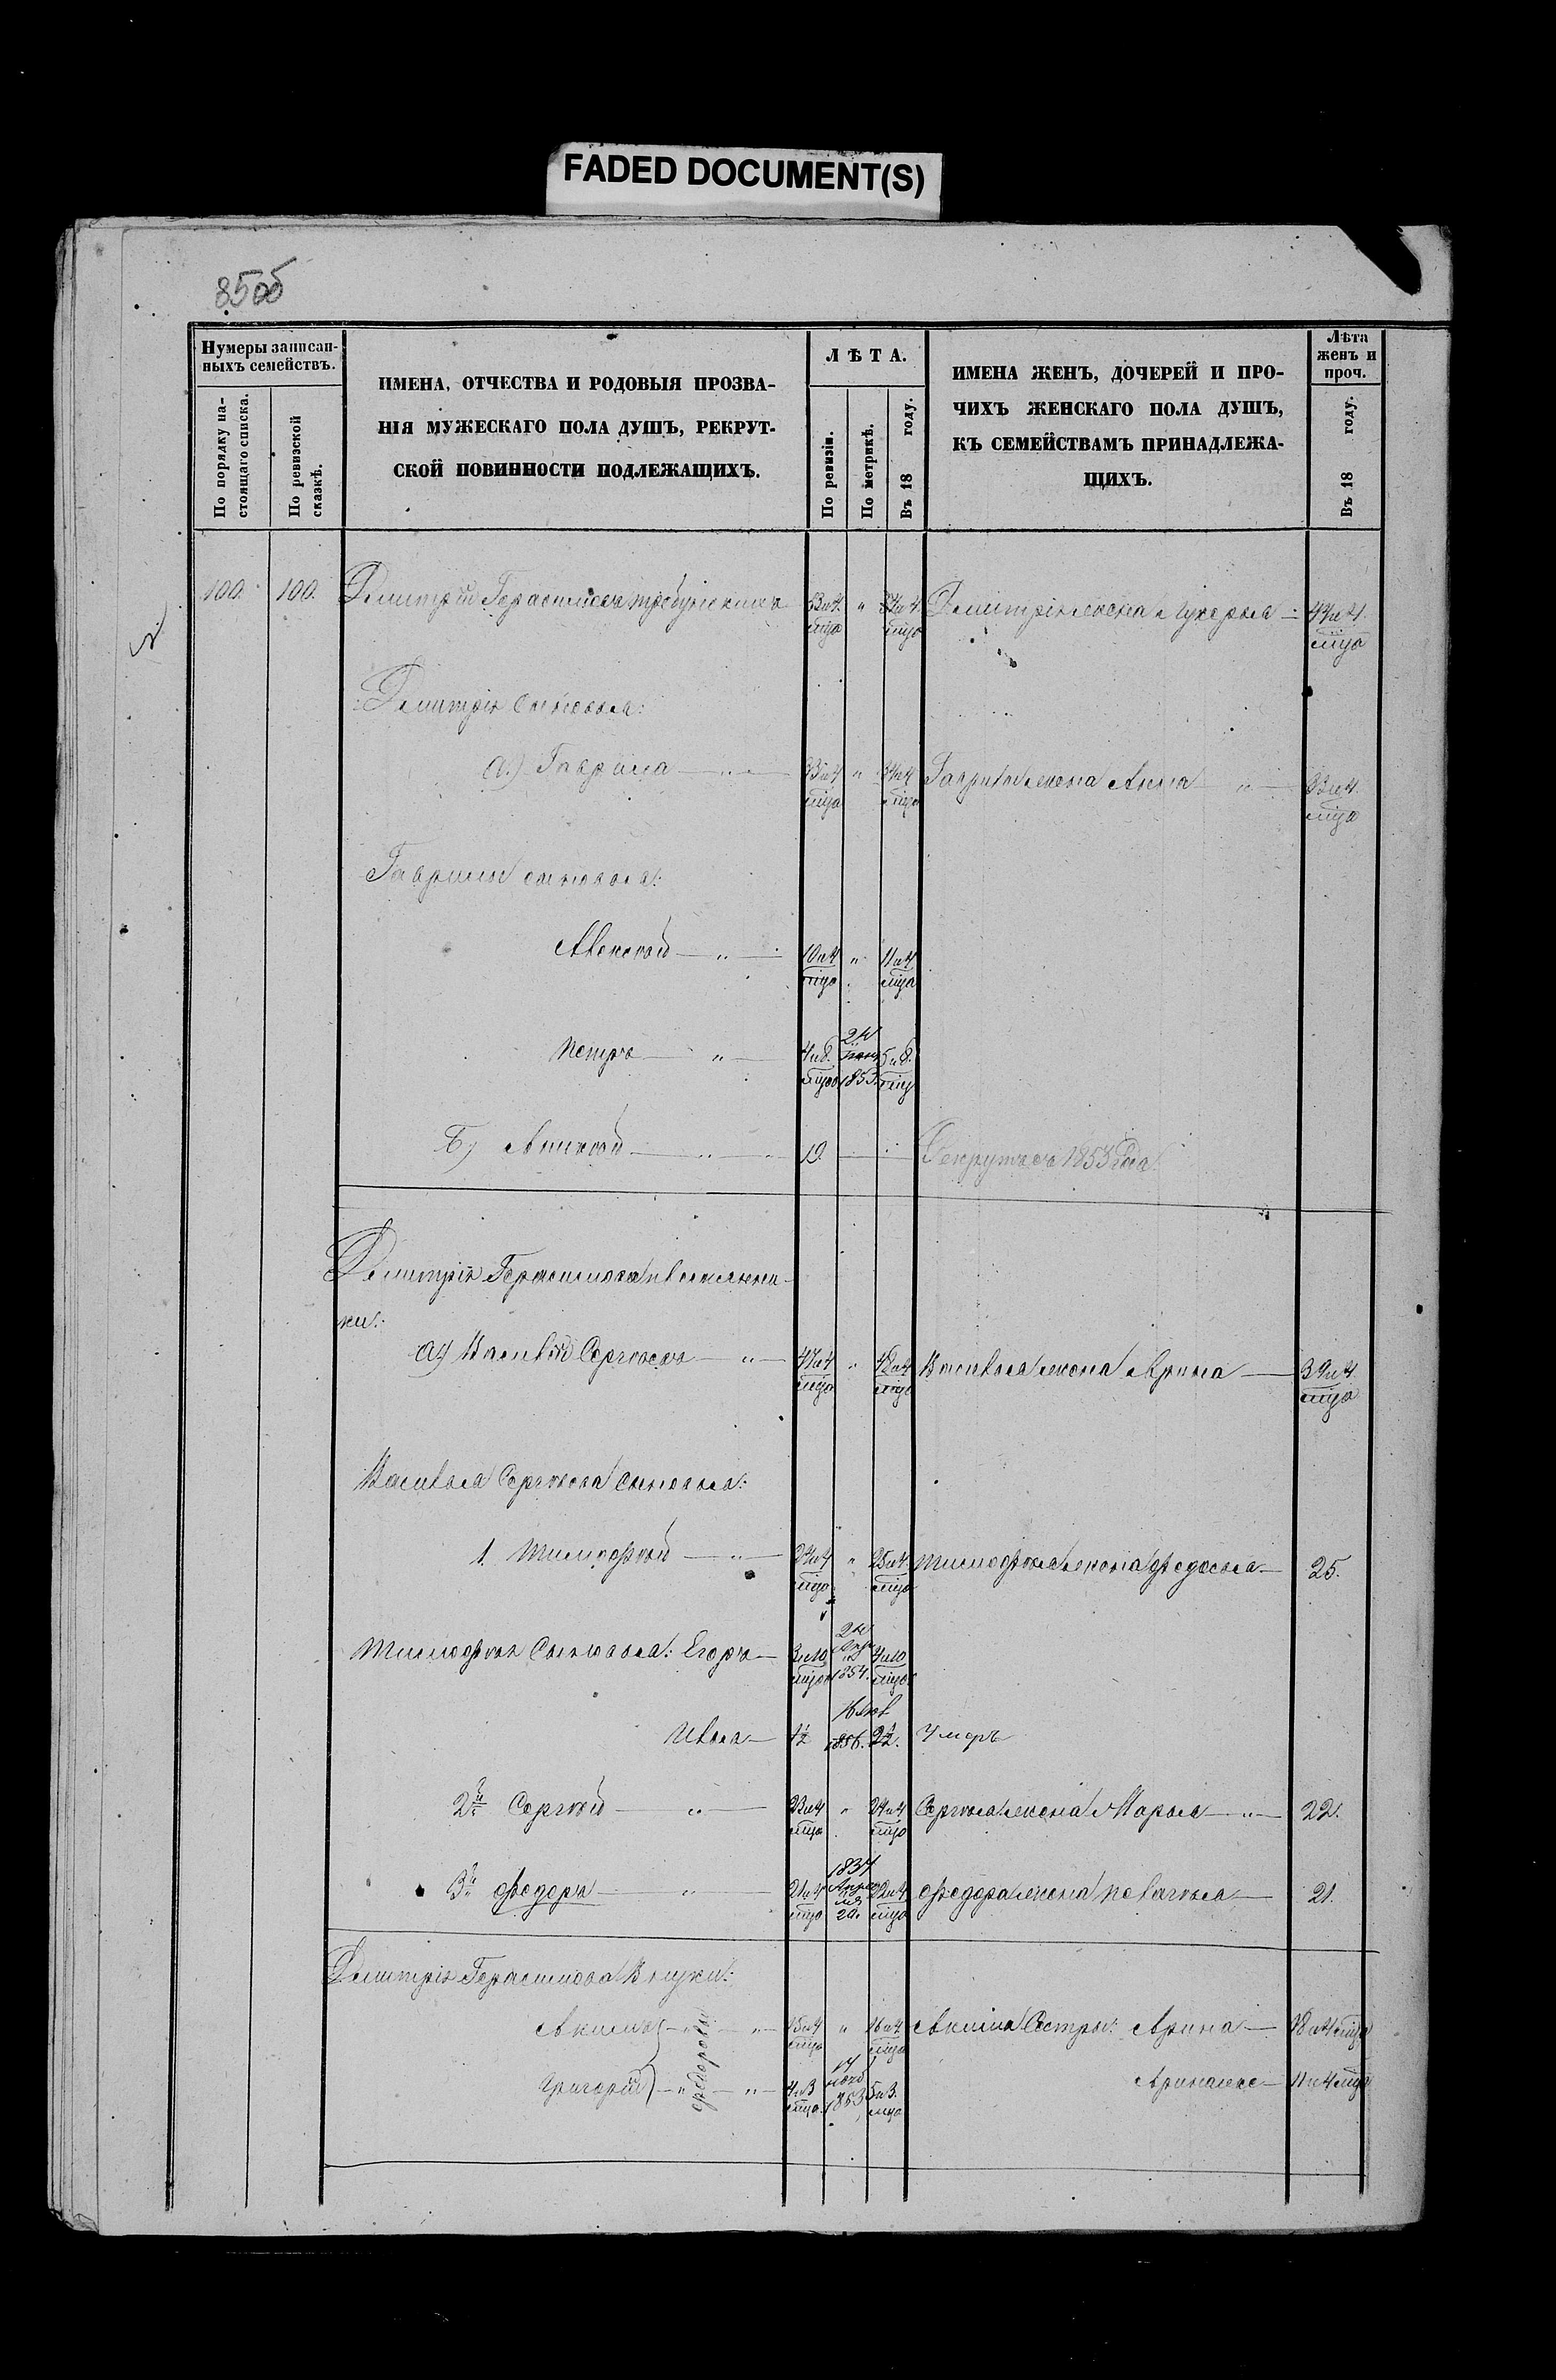 FADED DOCUMENT(S)
85об
Нумеры записан-
ныхъ семействъ.
По порядку на-
стоящаго списка.
По ревизской
сказкѣ.
ИМЕНА, ОТЧЕСТВА И РОДОВЫЯ ПРОЗВА-
НІЯ МУЖЕСКАГО ПОЛА ДУШЪ, РЕКРУТ-
СКОЙ ПОВИННОСТИ ПОДЛЕЖАЩИХЪ.
ЛѢТА.
По ревизіи.
По метрикѣ.
Въ 18 году.
ИМЕНА ЖЕНЪ, ДОЧЕРЕЙ И ПРО-
ЧИХЪ ЖЕНСКАГО ПОЛА ДУШЪ,
КЪ СЕМЕЙСТВАМЪ ПРИНАДЛЕЖА-
ЩИХЪ.
Лѣта
женъ и
проч.
Въ 18 году.
100. 100. Дмитрій Герасимовъ 53 и 4 мца " 54 и 4 мца Дмитрія жена Лукерья 44 и 4 мца
Дмитрія сыновья:
а.) Гаврила " 33 и 4 мца " 34 и 4 мца Гаврилы жена Анна " 33 и 4 мца
Гаврилы сыновья:
Алексѣй " 10 и 4 мца " 11 и 4 мца
Петръ " 4 и 8 мцов 1853. 5 и 8 мц
Б) Алексѣй " 19. Рекрутъ съ 1853 года
Дмитрія Герасимова племянни-
ки:
а) Василій Сергѣевъ " 47 и 4 мца " 48 и 4 мца Василья жена Арина 39 и 4 мца
Василья Сергѣева сыновья:
1. Тимофѣй " 24 и 4 мца " 25 и 4 мца Тимофѣя жена Федосья 25.
Тимофѣя сыновья: Егоръ 3 и 10 мцов 24 Апр 1854. 4 и 10 мцов
Иванъ 1/2 1856. 2 1/2. Умеръ
2й Сергѣй " 23 и 4 мца " 24 и 4 мца Сергѣя жена Марья " 22.
3й Федоръ " 21 и 4 мца 1834 Апреля 20. 22 и 4 мца Федора жена Пелагѣя 21.
Дмитрія Герасимова внуки:
Акимъ " " 15 и 4 мца " 16 и 4 мца Акима сестры: Арина 18 и 4 мца
Григорій " " 4 и 3 мца 1853 5 и 3 мца 11 и 4 мца
Федоровы